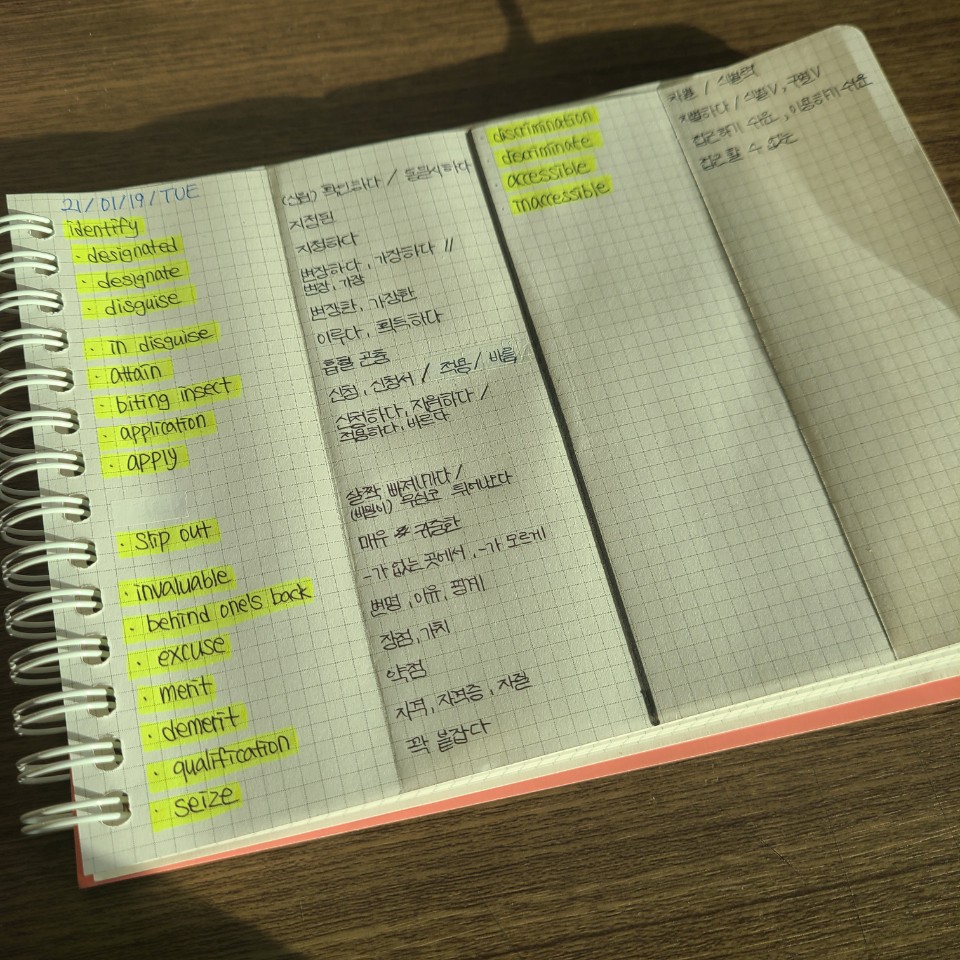 21/01/19/TUE
identify
(신원) 확인하다 / 동일시하다
· designated
지정된
· designate
지정하다
· disguise
변장하다, 가장하다 //
변장, 가장
· in disguise
변장한, 가장한
· attain
이루다, 획득하다
· biting insect
흡혈 곤충
· application
신청, 신청서 / 적용 / 바름
· apply
신청하다, 지원하다 /
적용하다, 바르다
· slip out
살짝 빠져나가다 /
(비밀이) 무심코 튀어나오다
· invaluable
매우 귀중한
· behind one's back
-가 없는 곳에서, -가 모르게
· excuse
변명, 이유, 핑계
· merit
장점, 가치
· demerit
약점
· qualification
자격, 자격증, 자질
· seize
꽉 붙잡다
· discrimination
차별 / 식별력
· discriminate
차별하다 / 식별V, 구별V
· accessible
접근하기 쉬운, 이용하기 쉬운
· inaccessible
접근할 수 없는